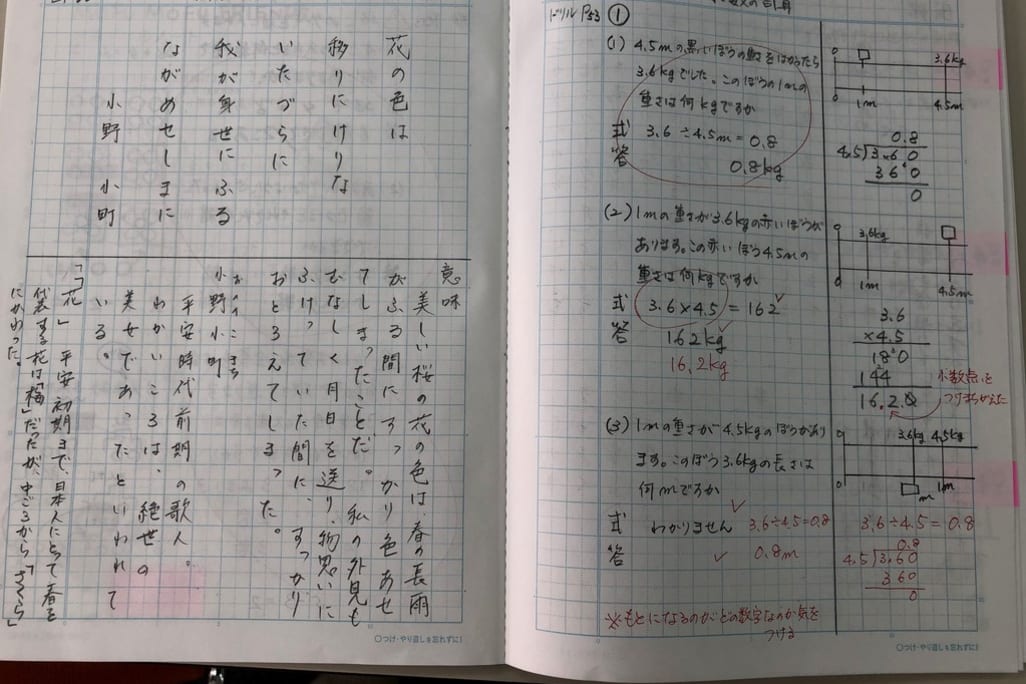 花の色は
移りにけりな
いたづらに
我が身世にふる
ながめせしまに
小野 小町
意味
美しい桜の花の色は、春の長雨
がふる間にすっかり色あせ
てしまったことだ。私の外見も
むなしく月日を送り、物思いに
ふけっていた間に、すっかり
おとろえてしまった。
小野小町
おののこまち
平安時代前期の歌人。
わかいころは、絶世の
美女であったといわれて
いる。
「花」 平安初期まで、日本人にとって春を
代表する花は「梅」だったが、中ごろから「さくら」
にかわった。
○つけ・やり直しを忘れずに!
ドリル P53 ①
(1) 4.5mの黒いぼうの重さをはかったら
3.6kgでした。このぼうの1mの
重さは何kgですか
式 3.6÷4.5m=0.8
答 0.8kg
0 3.6kg
0 1m 4.5m
0.8
4.5)3.60
360
0
(2) 1mの重さが3.6kgの赤いぼうが
あります。この赤いぼう4.5mの
重さは何kgですか
式 3.6×4.5=162
答 162kg
16.2kg
0 3.6kg
0 1m 4.5m
3.6
×4.5
180
144
16.20
小数点を
つけまちがえた
(3) 1mの重さが4.5kgのぼうがあり
ます。このぼう3.6kgの長さは
何mですか
式 わかりません 3.6÷4.5=0.8
答 0.8m
0 3.6kg 4.5kg
0 m 1m
3.6÷4.5=0.8
0.8
4.5)3.60
360
0
※もとになるのがどの数字なのか気を
つける
○つけ・やり直しを忘れずに!